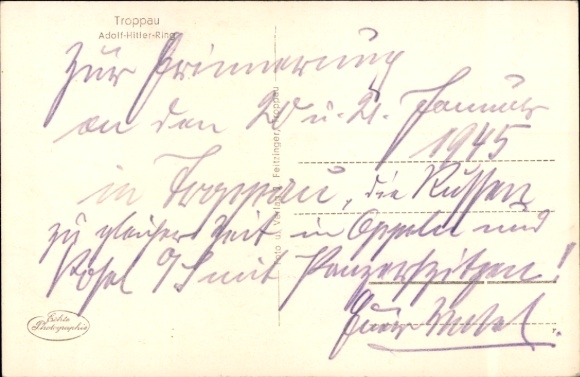 Troppau
Adolf-Hitler-Ring
Zur Erinnerung
an den 20 u. 21. Januar
1945
in Troppau, die Russen
zu gleicher Zeit in Oppeln und
Kosel O/S mit Panzerspitzen!
Foto u. Verlag Feitzinger, Troppau
Echte
Photographie